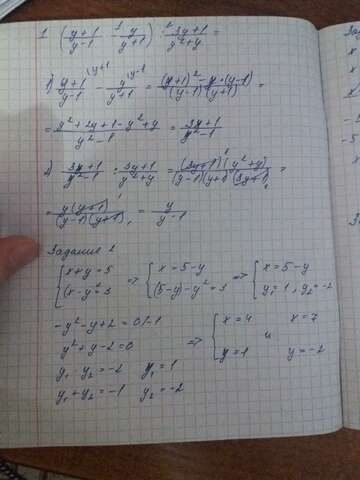 1 ( y+1/y-1 - y/y+1 ) : 3y+1/y²+y =
1) y+1/y-1 \y+1 - y/y+1 \y-1 = (y+1)² - y·(y-1)/(y-1)(y+1) =
= y²+2y+1-y²+y/y²-1 = 3y+1/y²-1
2) 3y+1/y²-1 : 3y+1/y²+y = (3y+1)(y²+y)/(y-1)(y+1)(3y+1) =
= y(y+1)/(y-1)(y+1) = y/y-1
Задание 2
{ x+y=5 => { x=5-y => { x=5-y
{ x-y²=3 { (5-y)-y²=3 { y₁=1, y₂=-2
-y²-y+2=0/-1
y²+y-2=0 => { x=4 и x=7
y₁·y₂=-2 y₁=1 { y=1 y=-2
y₁+y₂=-1 y₂=-2